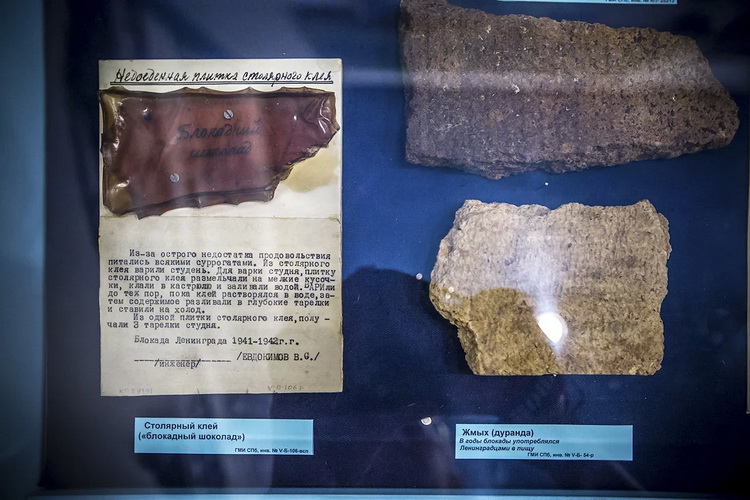 Недоеденная плитка столярного клея
Блокадный
шоколад
Из-за острого недостатка продовольствия
питались всякими суррогатами. Из столярного
клея варили студень. Для варки студня, плитку
столярного клея размельчали на мелкие кусоч-
ки, клали в кастрюлю и заливали водой. ВАРИли
до тех пор, пока клей растворялся в воде, за-
тем содержимое разливали в глубокие тарелки
и ставили на холод.
Из одной плитки столярного клея, полу -
чали 3 тарелки студня.
Блокада Ленинграда 1941-1942г.г.
/ЕВДОКИМОВ В.С./
/инженер/
Столярный клей
(«блокадный шоколад»)
ГМИ СПб, инв. № V-Б-106-всп
Жмых (дуранда)
В годы блокады употреблялся
Ленинградцами в пищу
ГМИ СПб, инв. № V-Б- 54-р